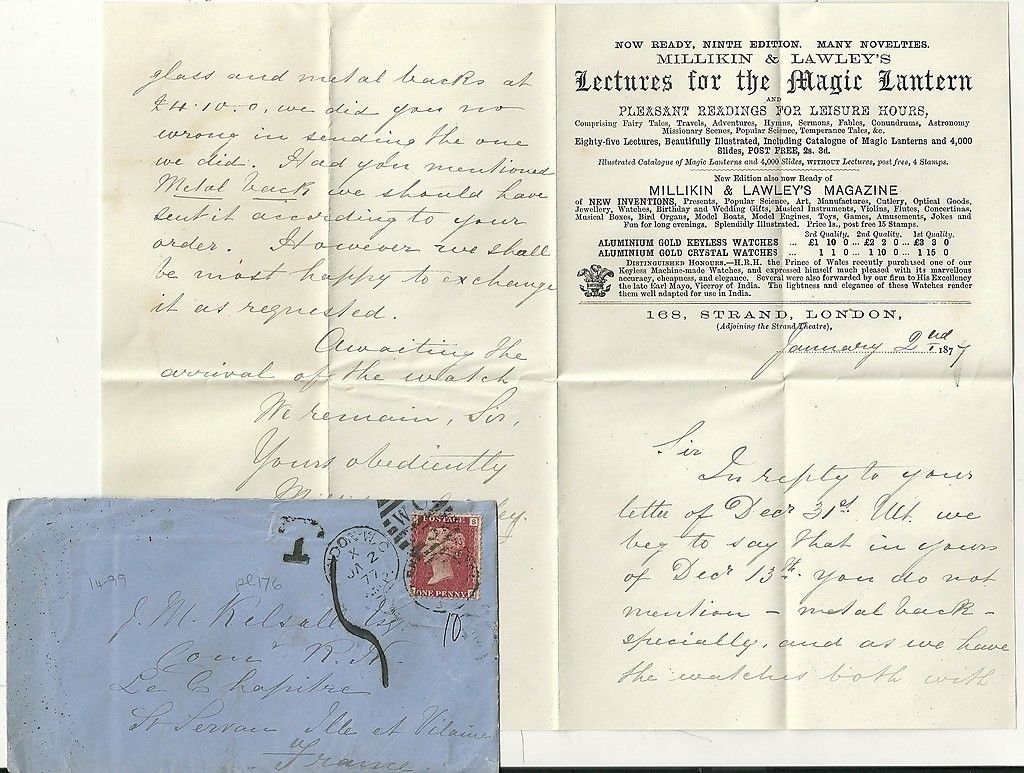 glass and metal backs at
£4.10.0, we did you no
wrong in sending the one
we did. Had you mentioned
Metal back, we should have
sent it according to your
order. However we shall
be most happy to exchange
it as requested.
Awaiting the
arrival of the watch
We remain, Sir,
Yours obediently
NOW READY, NINTH EDITION. MANY NOVELTIES.
MILLIKIN & LAWLEY'S
Lectures for the Magic Lantern
AND
PLEASANT READINGS FOR LEISURE HOURS,
Comprising Fairy Tales, Travels, Adventures, Hymns, Sermons, Fables, Conundrums, Astronomy
Missionary Scenes, Popular Science, Temperance Tales, &c.
Eighty-five Lectures, Beautifully Illustrated, Including Catalogue of Magic Lanterns and 4,000
Slides, POST FREE, 2s. 3d.
Illustrated Catalogue of Magic Lanterns and 4,000 Slides, WITHOUT LECTURES, post free, 4 Stamps.
New Edition also now Ready of
MILLIKIN & LAWLEY'S MAGAZINE
of NEW INVENTIONS, Presents, Popular Science, Art, Manufactures, Cutlery, Optical Goods,
Jewellery, Watches, Birthday and Wedding Gifts, Musical Instruments, Violins, Flutes, Concertinas,
Musical Boxes, Bird Organs, Model Boats, Model Engines, Toys, Games, Amusements, Jokes and
Fun for long evenings. Splendidly Illustrated. Price 1s., post free 15 Stamps.
3rd Quality. 2nd Quality. 1st Quality.
ALUMINIUM GOLD KEYLESS WATCHES ... £1 10 0 ... £2 2 0 ... £3 3 0
ALUMINIUM GOLD CRYSTAL WATCHES ... 1 1 0 ... 1 10 0 ... 1 15 0
DISTINGUISHED HONOURS.—H.R.H. the Prince of Wales recently purchased one of our
Keyless Machine-made Watches, and expressed himself much pleased with its marvellous
accuracy, cheapness, and elegance. Several were also forwarded by our firm to His Excellency
the late Earl Mayo, Viceroy of India. The lightness and elegance of these Watches render
them well adapted for use in India.
168, STRAND, LONDON,
(Adjoining the Strand Theatre),
January 2nd 1877
Sir
In reply to your
letter of Decr 31st Ult. we
beg to say that in yours
of Decr 13th you do not
mention – metal back –
specially, and as we have
the watches both with
T
WC
LONDON·W.C
X
JA 2
77
POSTAGE
ONE PENNY
14-99
pl176
10
J. M. Kelsall Esq.
Comr R.N.
Le Chapitre
St Servan Ille et Vilaine
France